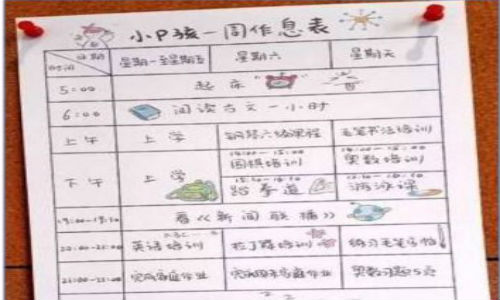 小P孩一周作息表
日期
时间
星期一至星期五 星期六 星期天
5:00 起床
6:00 阅读古文一小时
上午 上学 钢琴六级课程 毛笔书法培训
14:00-15:00 14:00-15:00
围棋培训 奥数培训
下午 上学
15:30-16:30
跆拳道 游泳课
19:00-19:30 看《新闻联播》
ABC
20:00-21:00 英语培训 拉丁舞培训 练习毛笔字帖
21:00-22:00 完成家庭作业 完成周末家庭作业 奥数习题5页